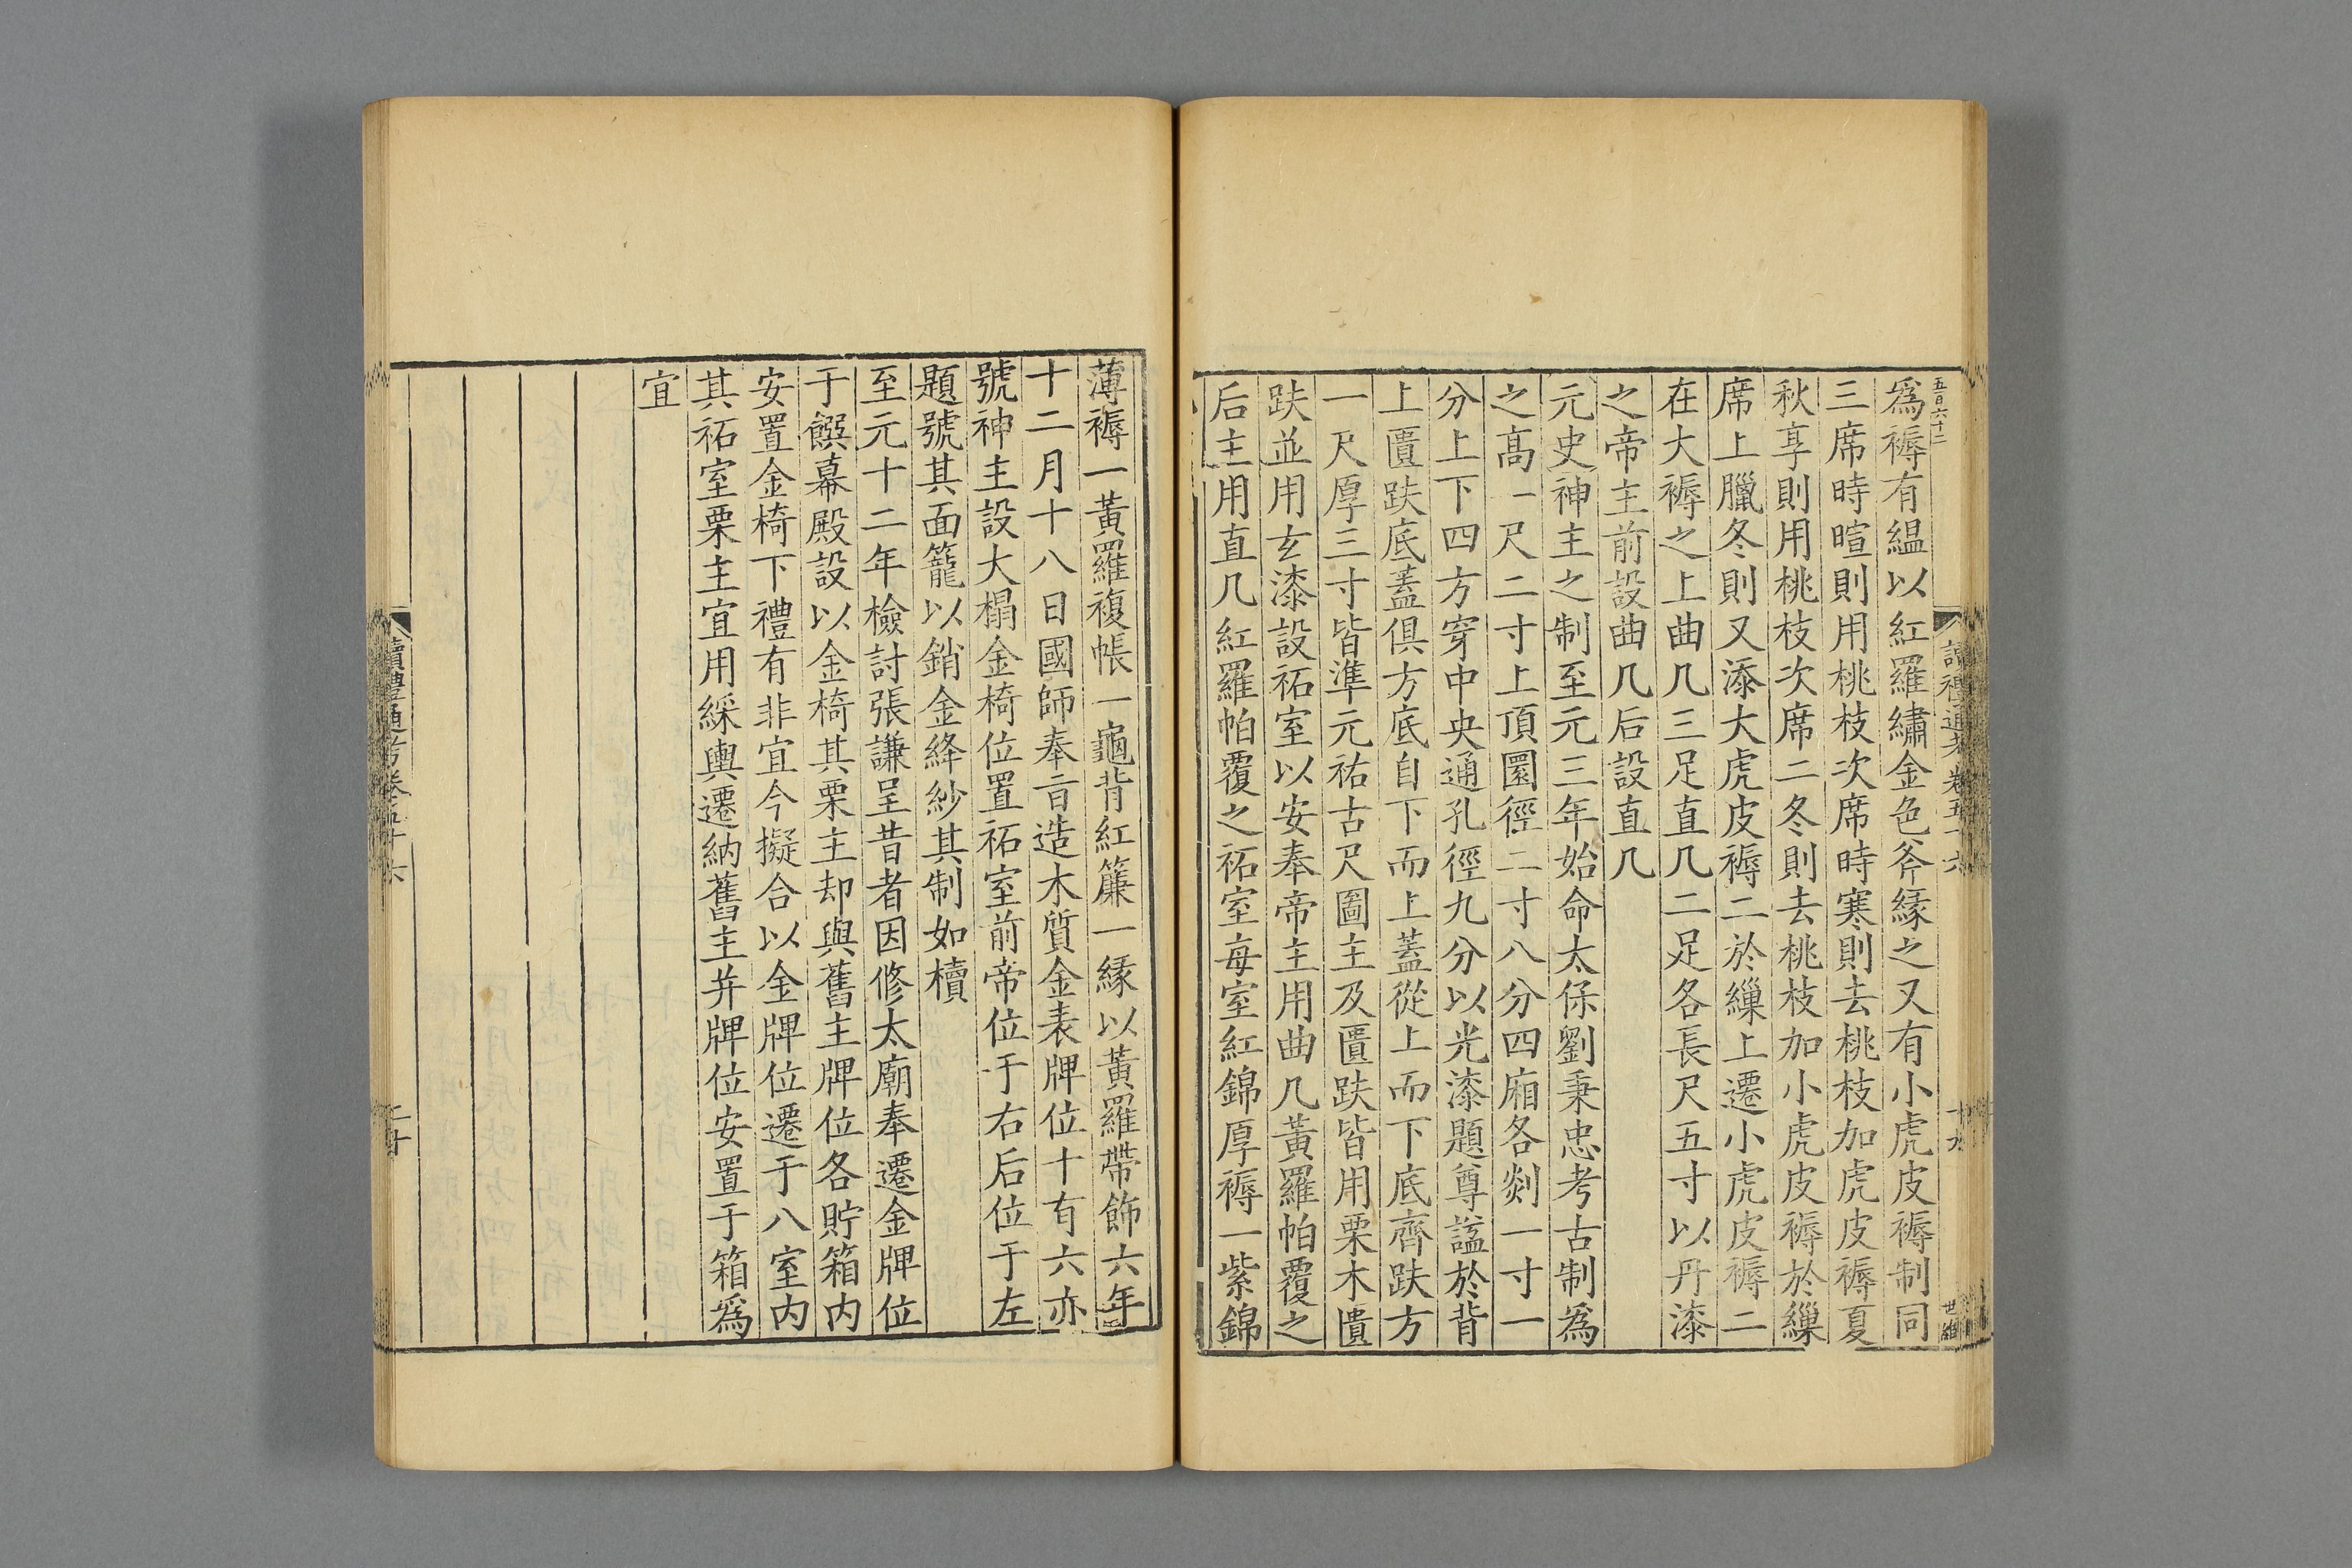 五百六十二
爲褥有緼以紅羅繡金色斧緣之又有小虎皮褥制同
三席時暄則用桃枝次席時寒則去桃枝加虎皮褥夏
秋享則用桃枝次席二冬則去桃枝加小虎皮褥於繅
席上臘冬則又添大虎皮褥二於繅上遷小虎皮褥二
在大褥之上曲几三足直几二足各長尺五寸以丹漆
之帝主前設曲几后設直几
元史神主之制至元三年始命太保劉秉忠考古制爲
之高一尺二寸上頂圜徑二寸八分四廂各剡一寸一
分上下四方穿中央通孔徑九分以光漆題尊諡於背
上匱趺底蓋俱方底自下而上蓋從上而下底齊趺方
一尺厚三寸皆準元祐古尺圖主及匱趺皆用栗木匱
趺並用玄漆設祏室以安奉帝主用曲几黃羅帕覆之
后主用直几紅羅帕覆之祏室每室紅錦厚褥一紫錦
讀禮通考卷五十六
十九
世維
薄褥一黃羅複帳一龜背紅簾一緣以黃羅帶飾六年
十二月十八日國師奉旨造木質金表牌位十有六亦
號神主設大榻金椅位置祏室前帝位于右后位于左
題號其面籠以銷金絳紗其制如櫝
至元十二年檢討張謙呈昔者因修太廟奉遷金牌位
于饌幕殿設以金椅其栗主却與舊主牌位各貯箱內
安置金椅下禮有非宜今擬合以金牌位遷于八室內
其祏室栗主宜用綵輿遷納舊主并牌位安置于箱爲
宜
讀禮通考卷五十六
二十